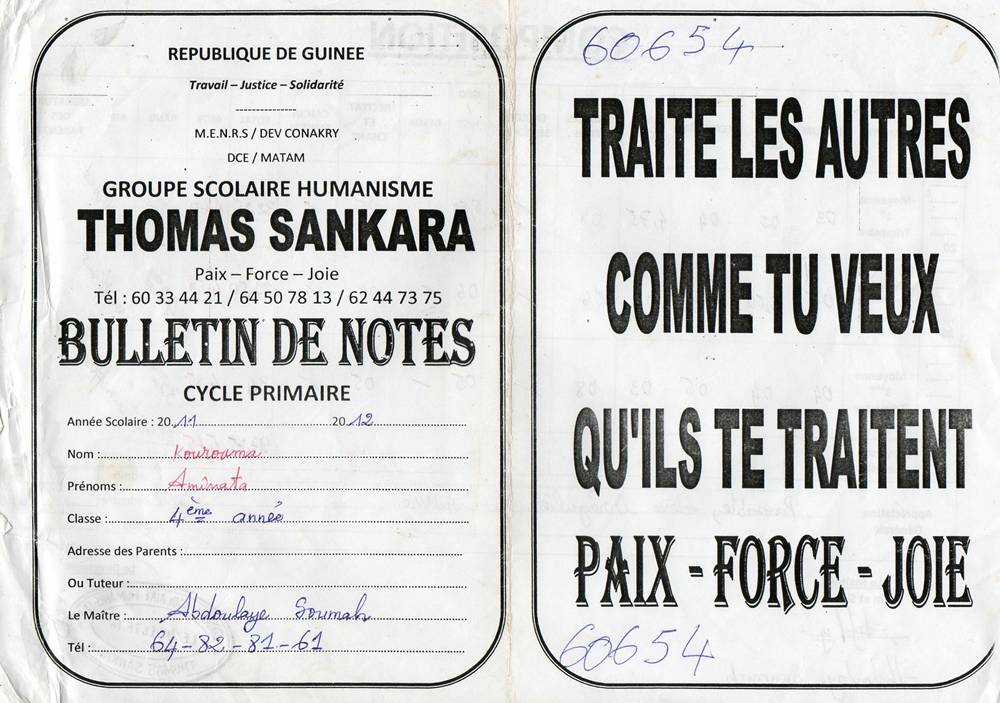 REPUBLIQUE DE GUINEE
Travail – Justice – Solidarité
---------------
M.E.N.R.S / DEV CONAKRY
DCE / MATAM
GROUPE SCOLAIRE HUMANISME
THOMAS SANKARA
Paix – Force – Joie
Tél : 60 33 44 21 / 64 50 78 13 / 62 44 73 75
BULLETIN DE NOTES
CYCLE PRIMAIRE
Année Scolaire : 20 11 20 12
Nom : Kourouma
Prénoms : Aminata
Classe : 4ème année
Adresse des Parents :
Ou Tuteur :
Le Maître : Abdoulaye Soumah
Tél : 64-82-81-61
60654
TRAITE LES AUTRES
COMME TU VEUX
QU'ILS TE TRAITENT
PAIX - FORCE - JOIE
60654